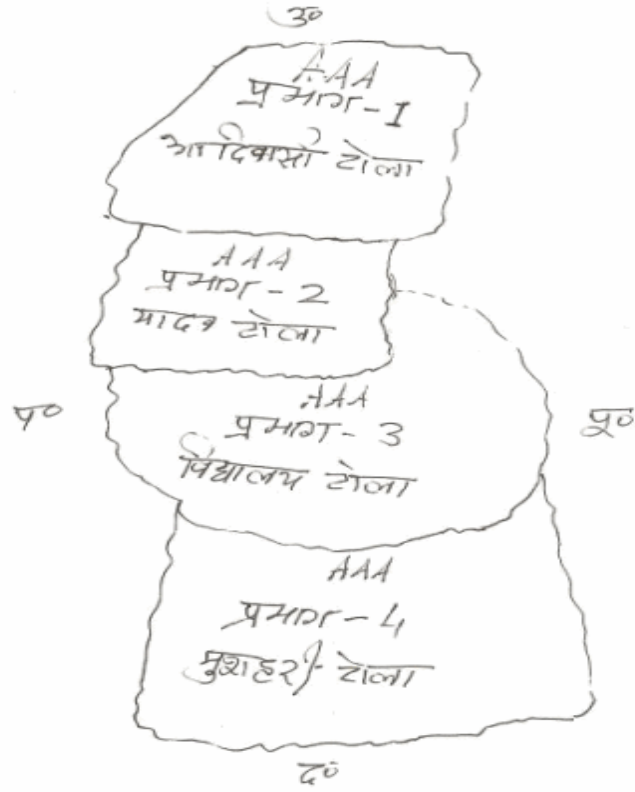 उ०
AAA
प्रभाग-1
आदिवासी टोला
AAA
प्रभाग-2
यादव टोला
प०
पू०
AAA
प्रभाग-3
विद्यालय टोला
AAA
प्रभाग-4
मुशहरी टोला
द०